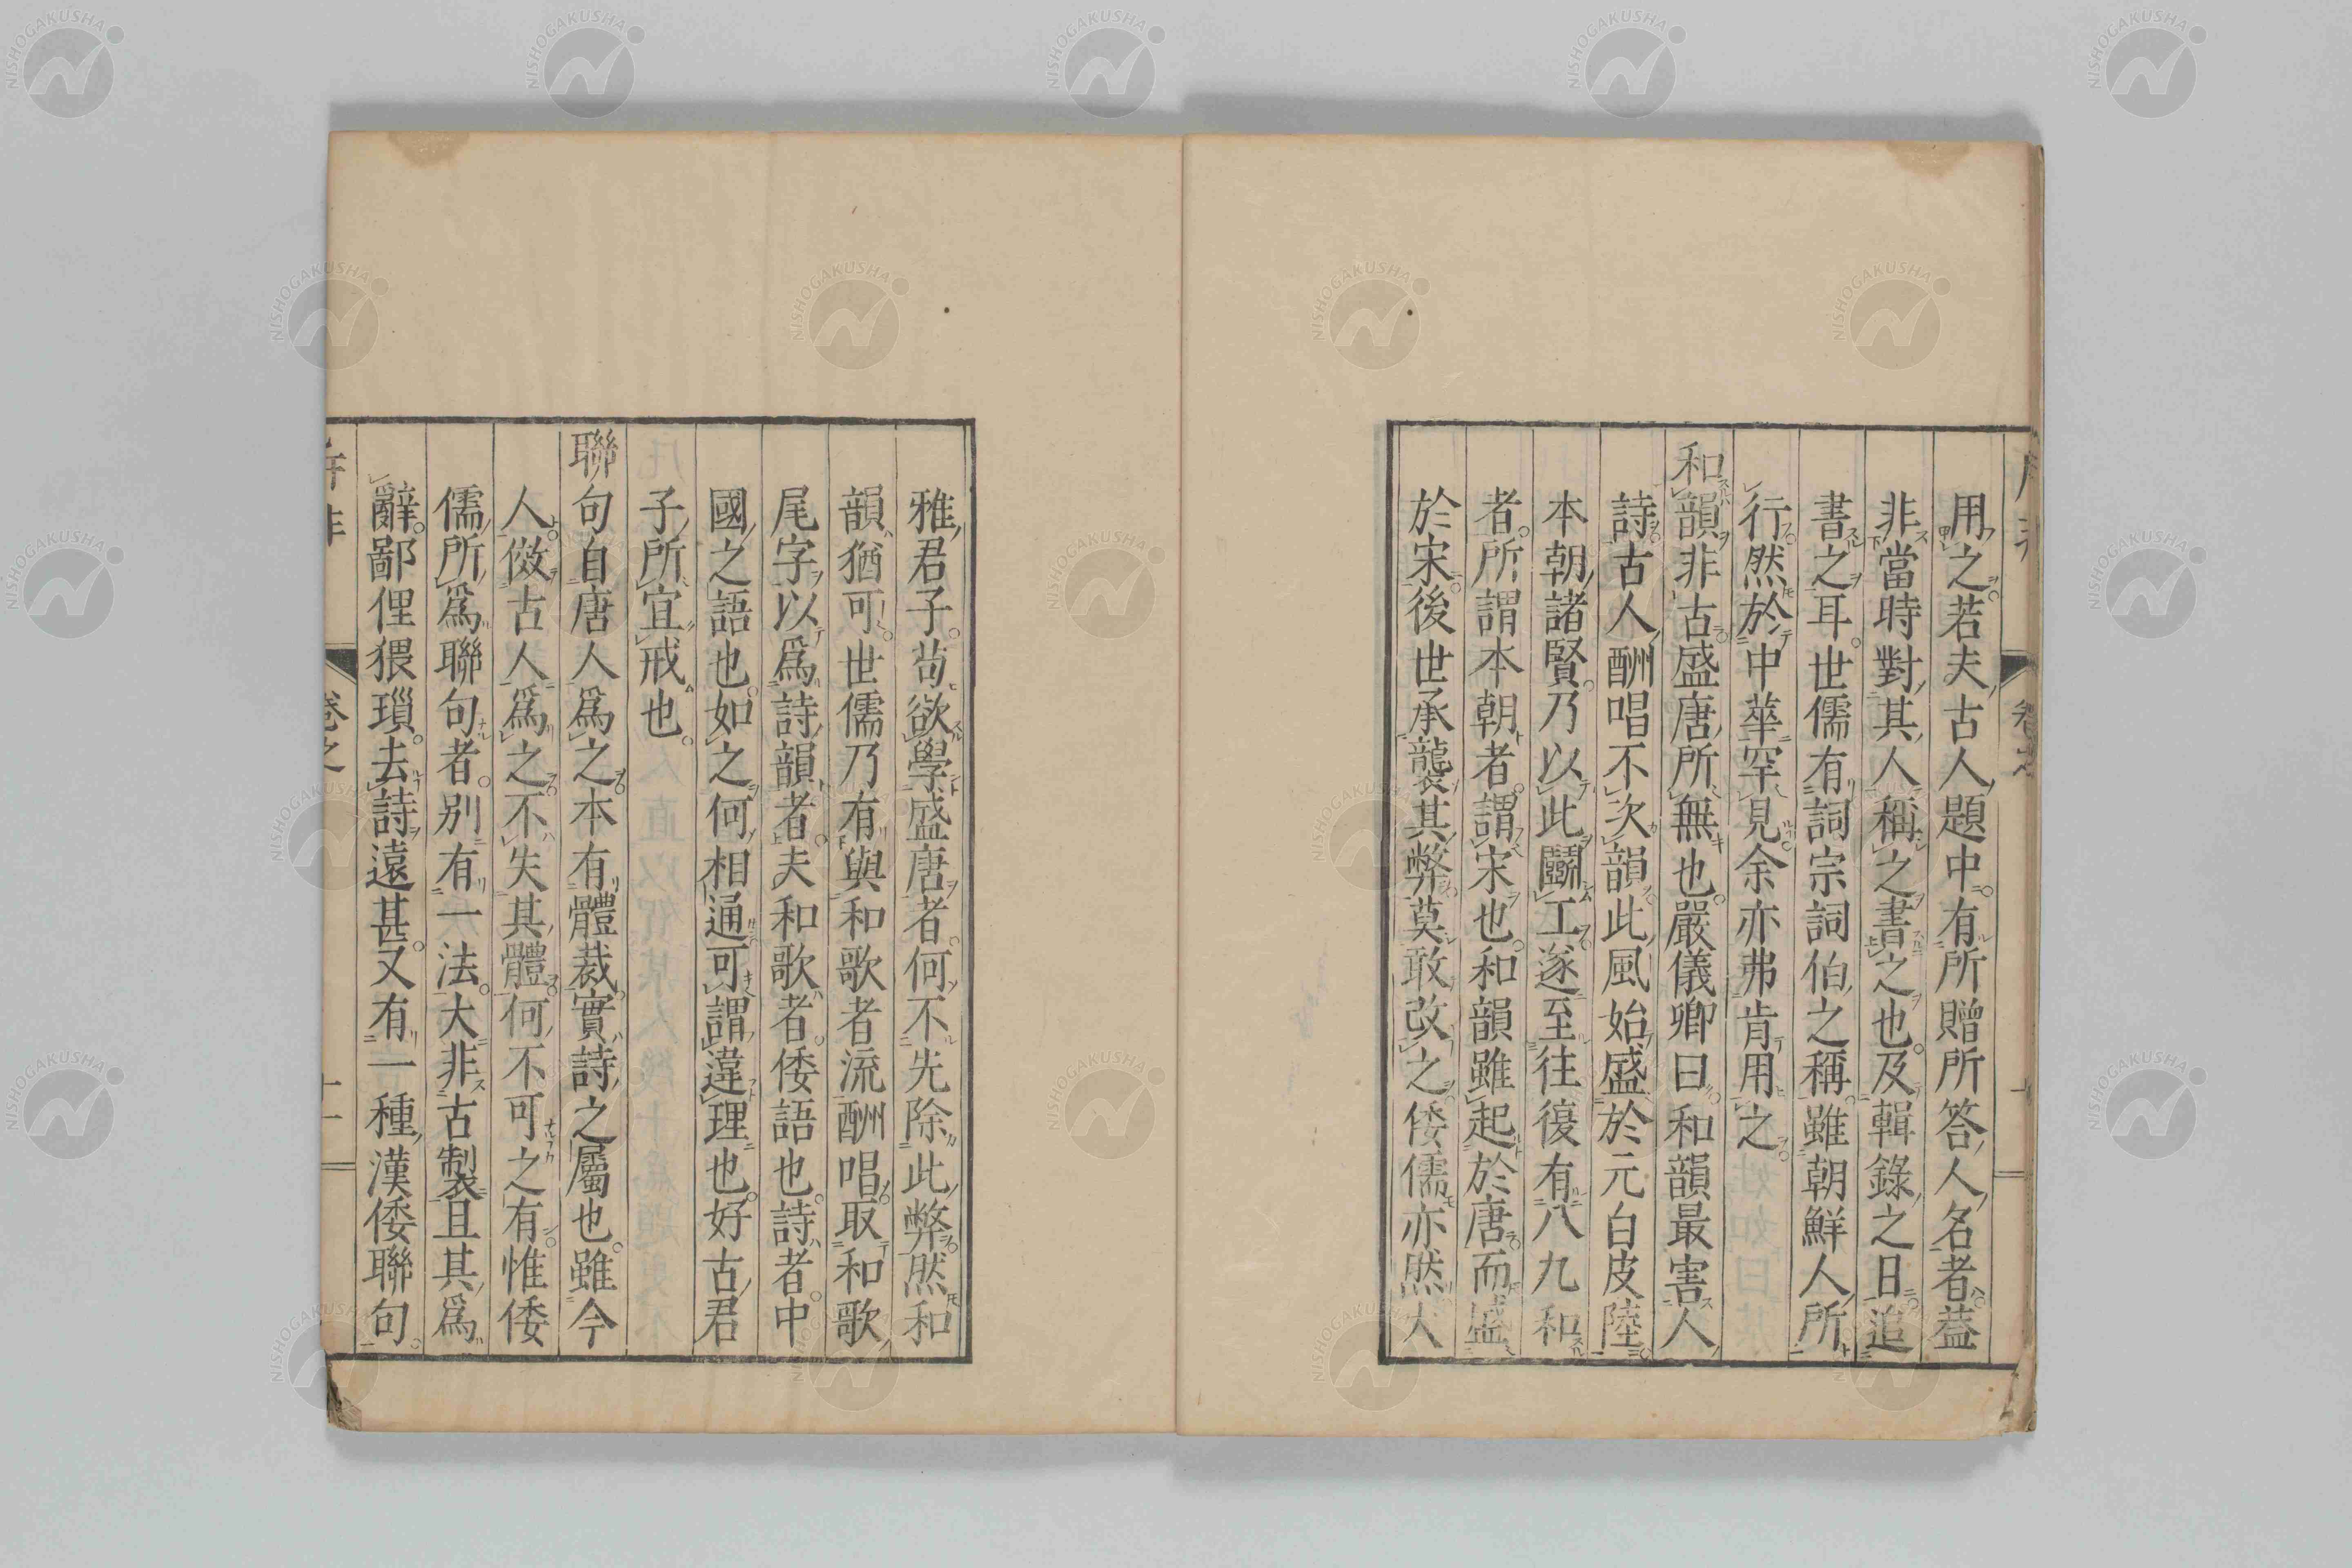 用之若夫古人題中有所贈所答人名者葢
非當時對其人稱之書之也及輯錄之日追
書之耳世儒有詞宗詞伯之稱雖朝鮮人所
行然於中華罕見余亦弗肯用之
和韻非古盛唐所無也嚴儀卿曰和韻最害人
詩古人酬唱不次韻此風始盛於元白皮陸
本朝諸賢乃以此鬭工遂至往復有八九和
者所謂本朝者謂宋也和韻雖起於唐而盛
於宋後世承襲其弊莫敢改之倭儒亦然大
雅君子苟欲學盛唐者何不先除此弊然和
韻猶可世儒乃有與和歌者流酬唱取和歌
尾字以爲詩韻者夫和歌者倭語也詩者中
國之語也如之何相通可謂違理也好古君
子所宜戒也
聯句自唐人爲之本有體裁實詩之屬也雖今
人傚古人爲之不失其體何不可之有惟倭
儒所爲聯句者別有一法大非古製且其爲
辭鄙俚猥瑣去詩遠甚又有一種漢倭聯句
卷之
十一
NISHOGAKUSHA